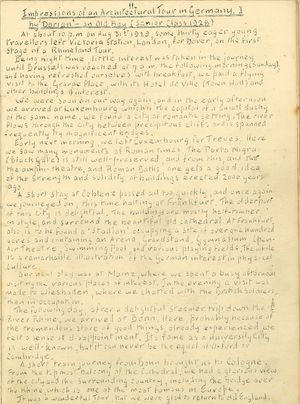 Impressions of an Architectural Tour in Germany, I
by "Dorian" - an Old Boy (Senior Class 1928)
At about 10 p.m. on Aug 31st 1929, some thirty eager young
travellers left Victoria Station, London, for Dover, on the first
stage of a Rhineland Tour.
Being night time little interest was taken in the journey
until Brussels was reached at 7 a.m. the following morning (Sunday),
and having refreshed ourselves with breakfast, we paid a flying
visit to the Grande Place, with its Hotel de Ville (Town Hall) and
other buildings of interest.
We were soon on our way again, and in the early afternoon
we arrived at Luxembourg which is the capital of a small duchy
of the same name. We found a city of romantic setting. The river
flows through the city between precipitous cliffs, and is spanned
frequently by magnificent bridges.
Early next morning, we left Luxembourg for Treves. Here
we saw many monuments of Roman times. The Porta Nigra
(black Gate) is still well-preserved, and from this, and the
amphi-theatre, and Roman Baths one gets a good idea
of the strength and solidity of buildings erected 2000 years
ago.
A short stay at Coblenz passed all too quickly, and once again
we journeyed on, this time halting at Frankfurt. The older part
of this city is delightful, the buildings are mostly half-timber
in style, and surround the beautiful old cathedral. At Frankfurt,
also, is to be found a "Stadion" occupying a site of over a hundred
acres and containing an Arena, Grandstand, Gymnasium, Open-
Air Theatre, Swimming Pool, and various playing fields. The whole
is a remarkable illustration of the German interest in physical
culture.
Our next stay was at Mainz, where we spent a busy afternoon
visiting the various places of interest. In the evening a visit was
made to Wiesbaden, where we chatted with the British soldiers
then in occupation.
The following day, after a delightful steamer trip down the
River Rhine, we arrived at Bonn. Here probably because of
the tremendous store of good things, already experienced we
felt a sense of disappointment. Its fame as a University city
is well-known, but it can never be the equal of Oxford or
Cambridge.
A short train journey from Bonn brought us to Cologne.
From the topmost balcony of the Cathedral, we had a glorious view
of the city and the surrounding country, including the bridge over
the Rhine, which is one of the most famous in Europe.
It was a wonderful Tour but we were glad to return to old England.